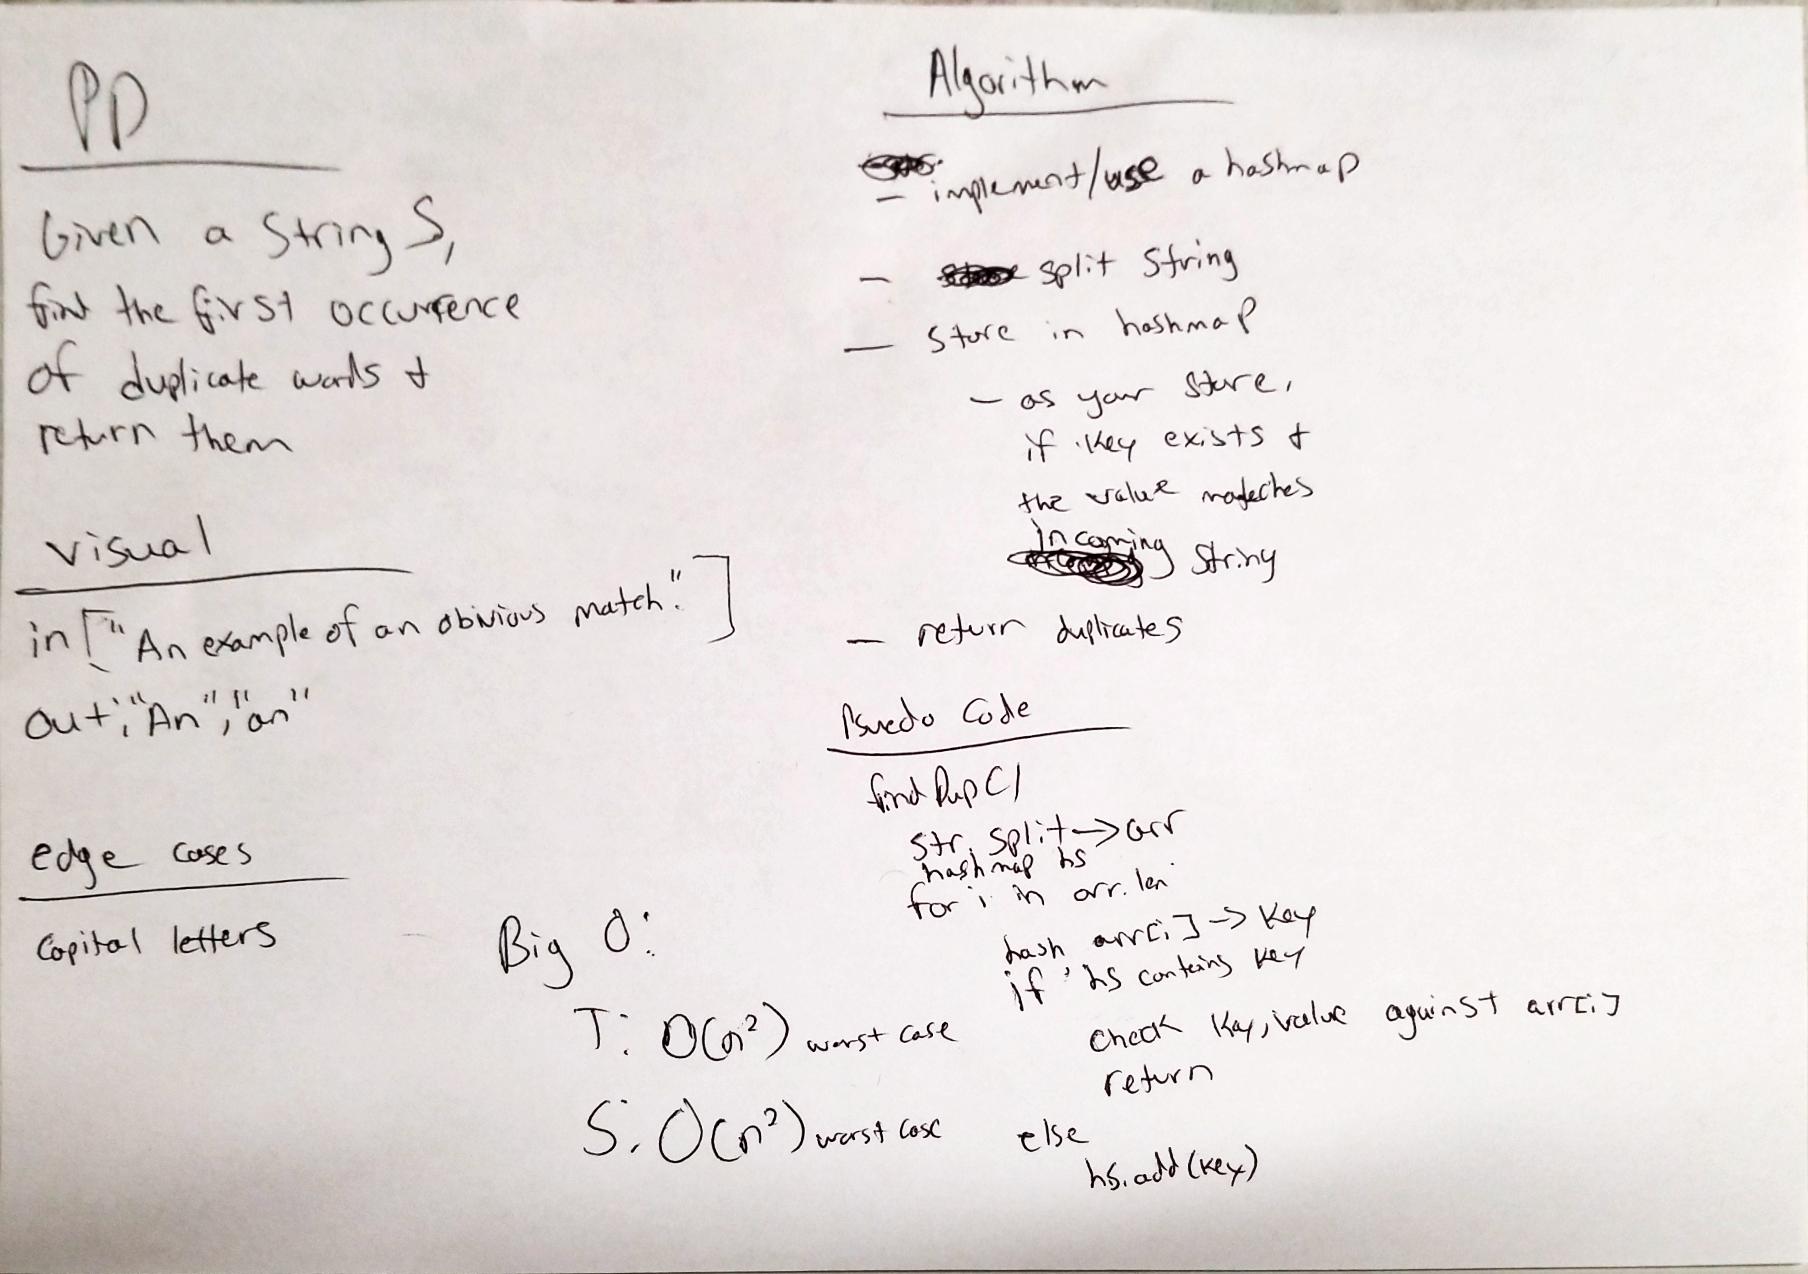 PD
Given a String S,
find the first occurrence
of duplicate words &
return them
visual
in ["An example of an obivious match."]
out: "An", "an"
edge cases
Capital letters
Big O:
T: O(n²) worst case
S: O(n²) worst case
Algorithm
- implement/use a hashmap
- split String
- Store in hashmap
- as your store,
if key exists &
the value mateches
incoming String
- return duplicates
Psuedo Code
findDup()
str. split → arr
hashmap hs
for i in arr. len
hash arr[i] → key
if hs contains key
check key, value against arr[i]
return
else
hs.add(key)